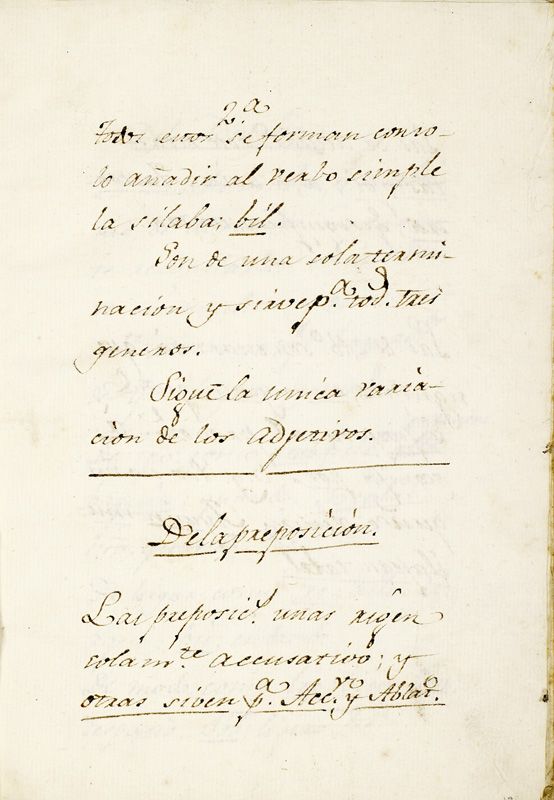 2ª
Todos estos se forman con so-
lo añadir al verbo simple
la silaba; bil.
Son de una sola termi-
nacion y sirve pª. tod.s tres
generos.
Sigue la unica varia-
cion de los adjetivos.
De la preposición.
Las preposic.s unas rigen
solam.te accusativo; y
otras siben pª. Acc.vo y Ablat.o